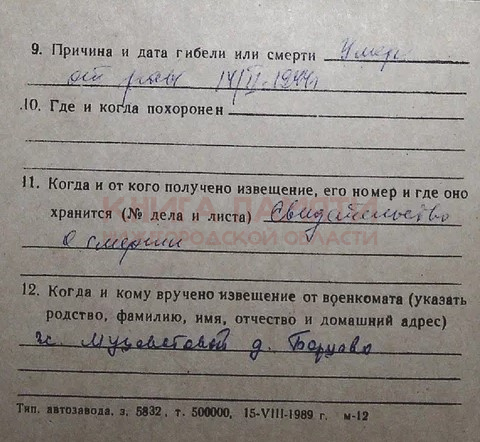 9. Причина и дата гибели или смерти Умер
от ран 14/II-1944г
10. Где и когда похоронен
11. Когда и от кого получено извещение, его номер и где оно
хранится (№ дела и листа) Свидетельство
КНИГА ПАМЯТИ
НИЖЕГОРОДСКОЙ ОБЛАСТИ
о смерти
12. Когда и кому вручено извещение от военкомата (указать
родство, фамилию, имя, отчество и домашний адрес)
ж. д.
Тип. автозавода, з. 5832, т. 500000, 15-VIII-1989 г. м-12